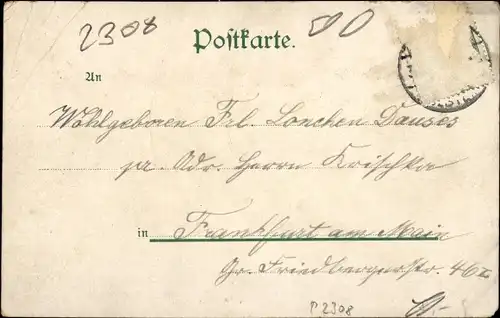 2308
Postkarte.
An
Wohlgeboren Frl. Lonchen Dauses
pr. Adr. Herrn Krischka
in Frankfurt am Main
Gr. Friedbergerstr. 46I
P 2308